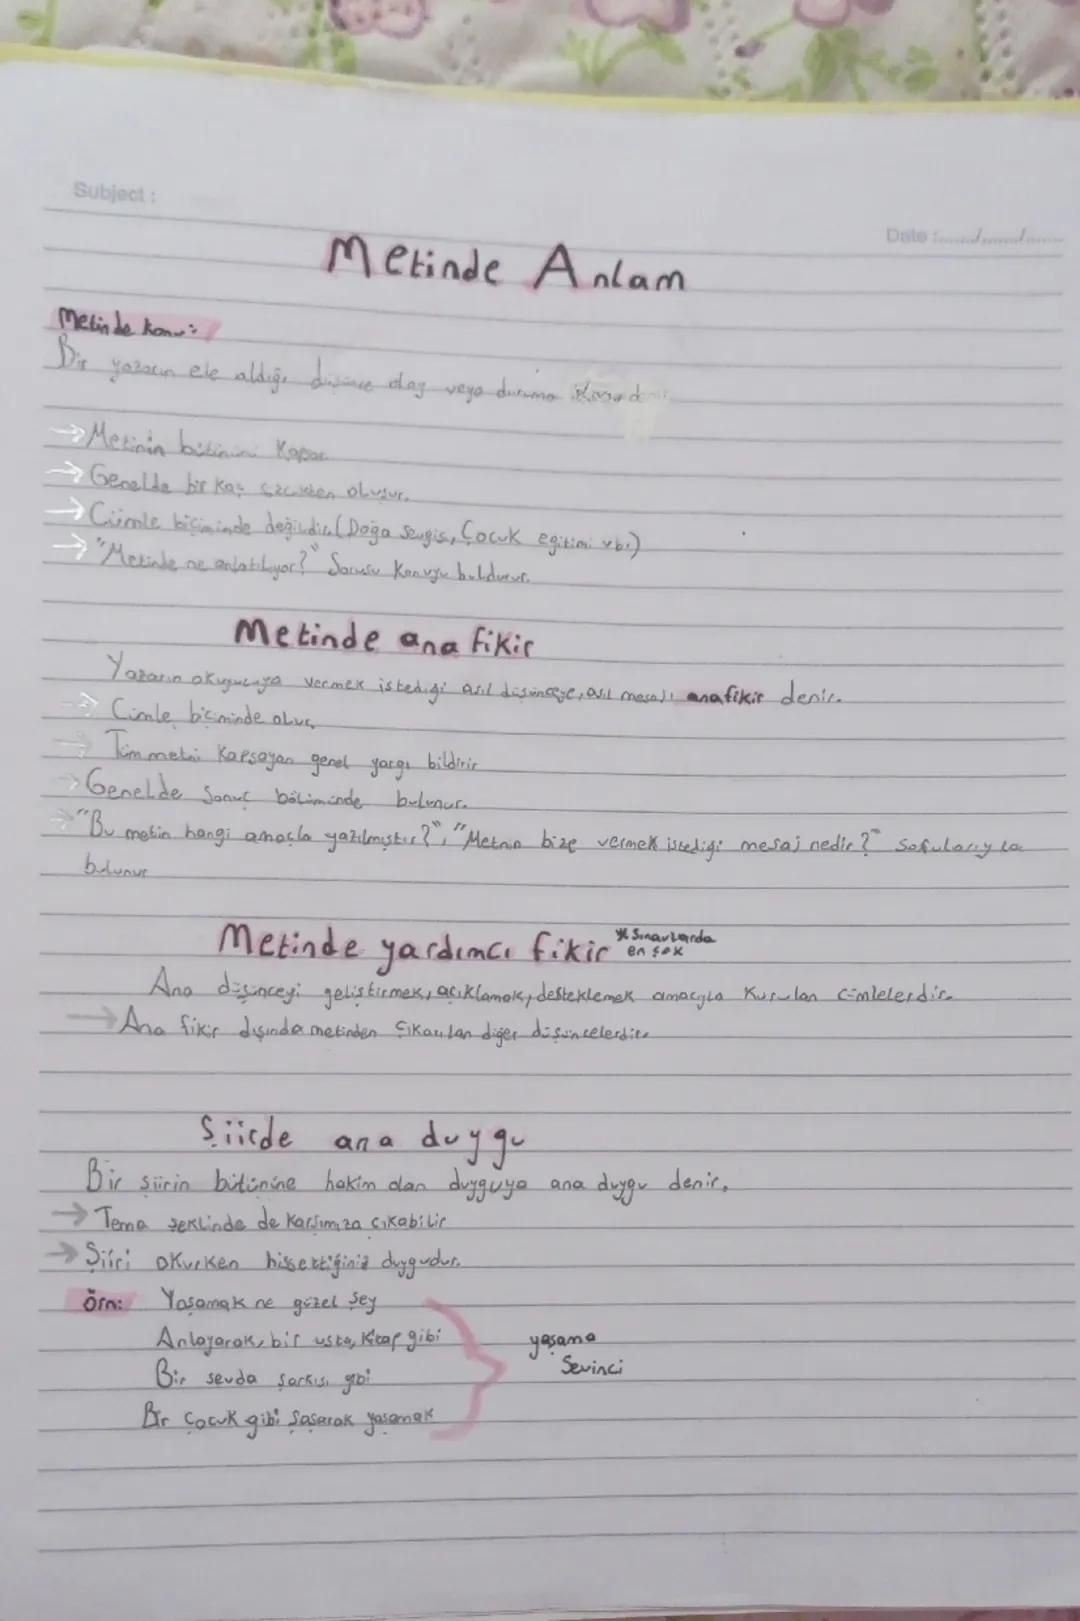 Subject :
Date :......./......./.......
Metinde Anlam
Metinde konu:
Bir yazarın ele aldığı düşünce olay veya duruma konu denir.
→ Metinin bütününü kapsar
→ Genelde bir kaç sözcükten oluşur.
→ Cümle biçiminde değildir. (Doğa sevgisi, Çocuk eğitimi vb.)
→ "Metinde ne anlatılıyor?" Sorusu konuyu buldurur.
Metinde ana fikir
Yazarın okuyucuya vermek istediği asıl düşünceye, asıl mesajı anafikir denir.
→ Cümle biçiminde olur.
→ Tüm metni kapsayan genel yargı bildirir
→ Genelde Sonuç bölümünde bulunur.
→ "Bu metin hangi amaçla yazılmıştır?", "Metnin bize vermek istediği mesaj nedir?" Sorularıyla
bulunur
Metinde yardımcı fikir * Sınavlarda
en çok
Ana düşünceyi geliştirmek, açıklamak, desteklemek amacıyla kurulan cümlelerdir.
→ Ana fikir dışında metinden çıkarılan diğer düşüncelerdir.
Şiirde ana duygu
Bir şiirin bütününe hakim olan duyguya ana duygu denir.
→ Tema şeklinde de karşımıza çıkabilir
→ Şiiri okurken hissettiğiniz duygudur.
Örn: Yaşamak ne güzel şey
Anlayarak, bir usta, kitap gibi
Bir sevda şarkısı gibi
Bir çocuk gibi şaşarak yaşamak
yaşama
Sevinci